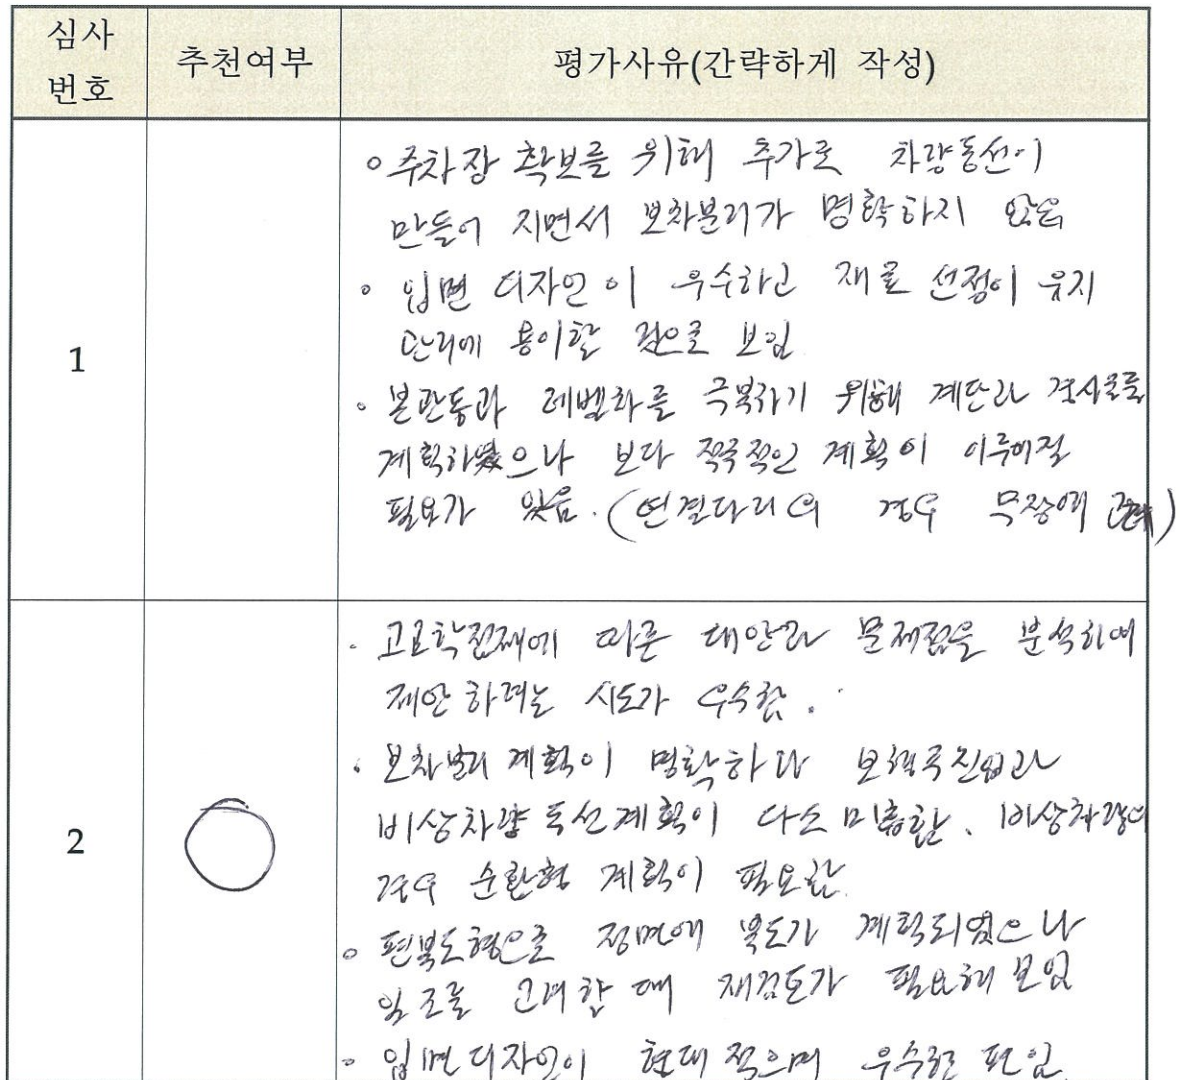 심사
번호
추천여부
평가사유(간략하게 작성)
1
∘ 주차장 확보를 위해 추가로 차량동선이
만들어 지면서 보차분리가 명확하지 않음
∘ 입면 디자인이 우수하고 재료 선정이 유지
관리에 용이할 것으로 보임
∘ 본관동과 레벨차를 극복하기 위해 계단과 경사로를
계획하였으나 보다 적극적인 계획이 이루어질
필요가 있음. (연결다리의 경우 무장애)
2
· 고교학점제에 따른 대안과 문제점을 분석하여
제안하려는 시도가 우수함.
· 보차분리 계획이 명확하다 보행주진입과
비상차량 동선계획이 다소 미흡함. 비상차량의
경우 순환형 계획이 필요함.
∘ 편복도형으로 정면에 복도가 계획되었으나
일조를 고려할 때 재검토가 필요해 보임
∘ 입면디자인이 현대적으며 우수한 편임.